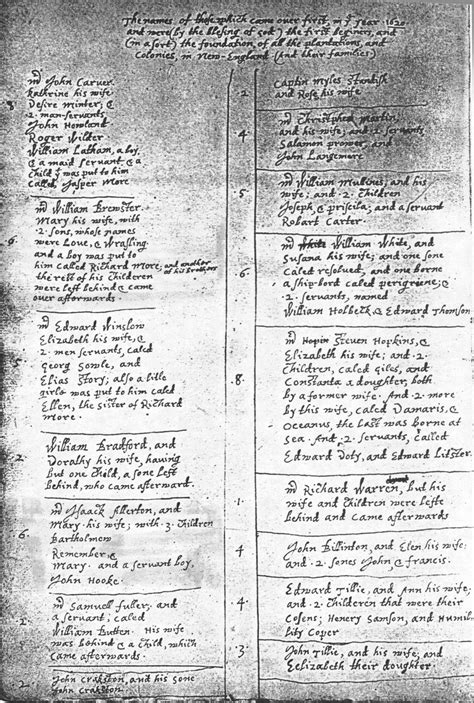 The names of those which came over first, in yᵉ year .1620.
and were (by the blesing of god) the first beginers, and
(in a sort) the foundation, of all the plantations, and
Colonies, in New-England. (And their families)
8.
mʳ John Carver.
kathrine his wife.
Desire minter; &
.2. man-servants
John Howland
Roger Wilder
William Latham, a boy,
& a maid servant, & a
Child yᵗ was put to him
called, Jasper More
6.
mʳ William Brewster.
Mary his wife, with
.2. sons, whose names
were Love, & Wrasling.
and a boy was put to
him called Richard More; and another
of his Brothers
the rest of his Children
were left behind & came
over afterwards.
mʳ Edward Winslow
Elizabeth his wife, &
.2. men servants, caled
Georg Sowle, and
Elias Story; also a litle
girle was put to him caled
Ellen, the sister of Richard
More.
2.
William Bradford, and
Dorathy his wife, having
but one Child, a sone left
behind, who came afterward.
6.
mʳ Isaack Allerton, and
Mary his wife; with .3. Children
Bartholmew
Remember, &
Mary. and a servant boy,
John Hooke.
2.
mʳ Samuell fuller; and
a servant; caled
William Butten. His wife
was behind & a Child, which
came afterwards.
2.
John Crakston, and his sone
John Crakston
.2.
Captin Myles Standish
and Rose his wife
4.
mʳ Christopher Martin,
and his wife; and .2. servants,
Salamon prower, and
John Langemore
.5.
mʳ William Mullines, and his
wife; and .2. Children
Joseph, & priscila; and a servant
Robart Carter.
6.
mʳ William White, and
Susana his wife; and one sone
Caled resolved, and one borne
a ship-bord caled perigriene; &
.2. servants, named
William Holbeck, & Edward Thomson
.8.
mʳ Steven Hopkins, &
Elizabeth his wife; and .2.
Children, caled Giles, and
Constanta a doughter, both
by a former wife. And .2. more
by this wife, caled Damaris, &
Oceanus, the last was borne at
sea. And .2. servants, called
Edward Doty, and Edward Litster.
.1.
mʳ Richard Warren, but his
wife and Children were lefte
behind and came afterwards
4
John Billinton, and Elen his wife:
and .2. sones John & francis.
.4.
Edward Tillie, and Ann his wife;
and .2. Childeren that were their
Cosens; Henery Samson, and Humil-
lity Coper
.3.
John Tillie, and his wife; and
Eelizabeth their doughter.